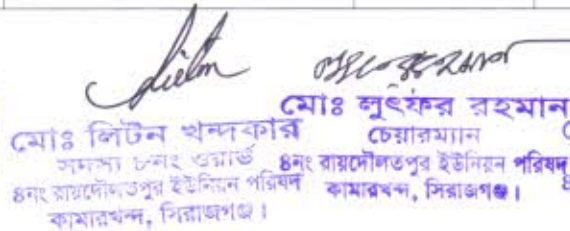 মোঃ লিটন খন্দকার
সদস্য ৮নং ওয়ার্ড
৪নং রায়দৌলতপুর ইউনিয়ন পরিষদ
কামারখন্দ, সিরাজগঞ্জ।
মোঃ লুৎফর রহমান
চেয়ারম্যান
৪নং রায়দৌলতপুর ইউনিয়ন পরিষদ
কামারখন্দ, সিরাজগঞ্জ।